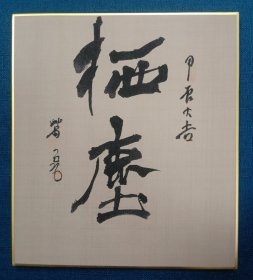 甲辰大吉
栖塵